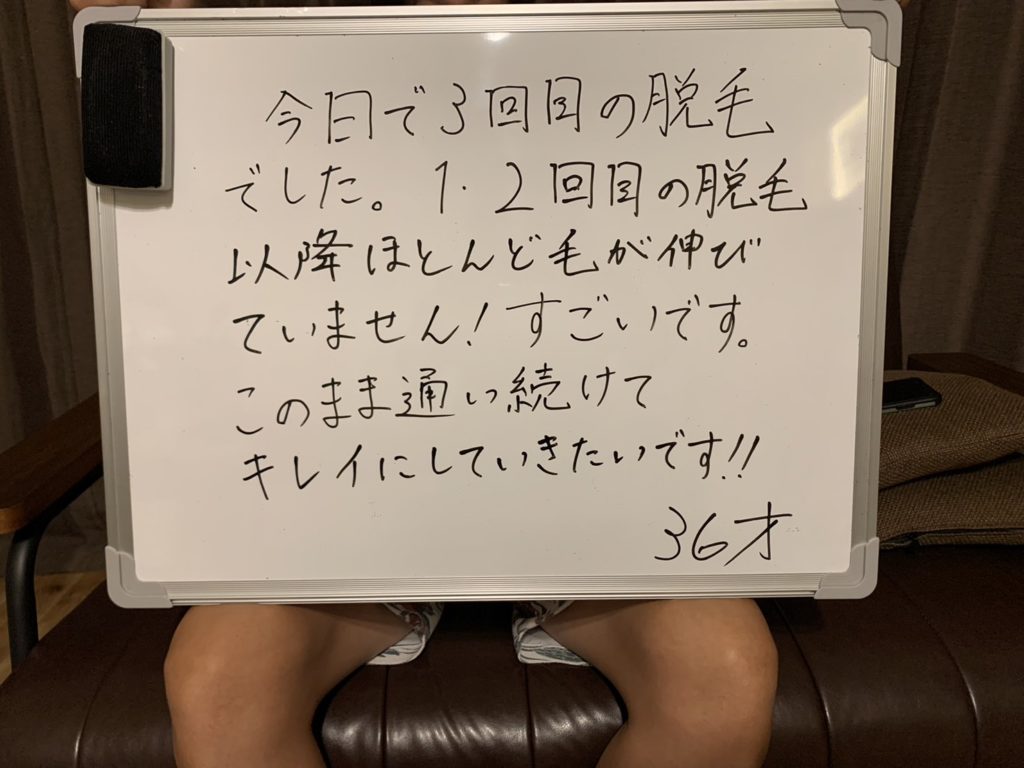 今日で3回目の脱毛
でした。1・2回目の脱毛
以降ほとんど毛が伸び
ていません!すごいです。
このまま通い続けて
キレイにしていきたいです!!
36才